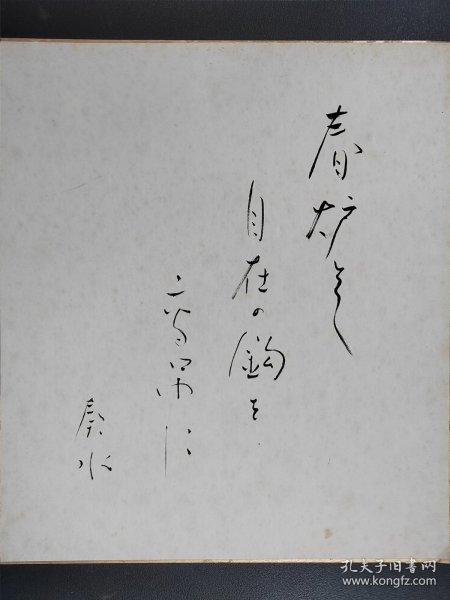 春炉とし
自在の鈎を
高吊に
奏水
孔夫子旧书网
www.kongfz.com